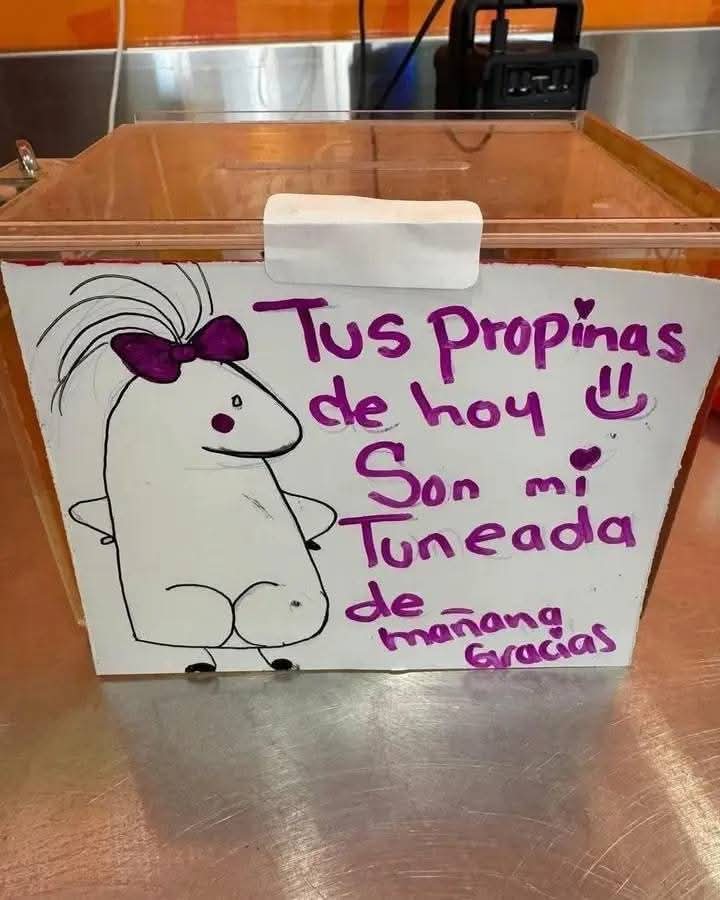 Tus propinas
de hoy
Son mi
Tuneada
de mañana
Gracias